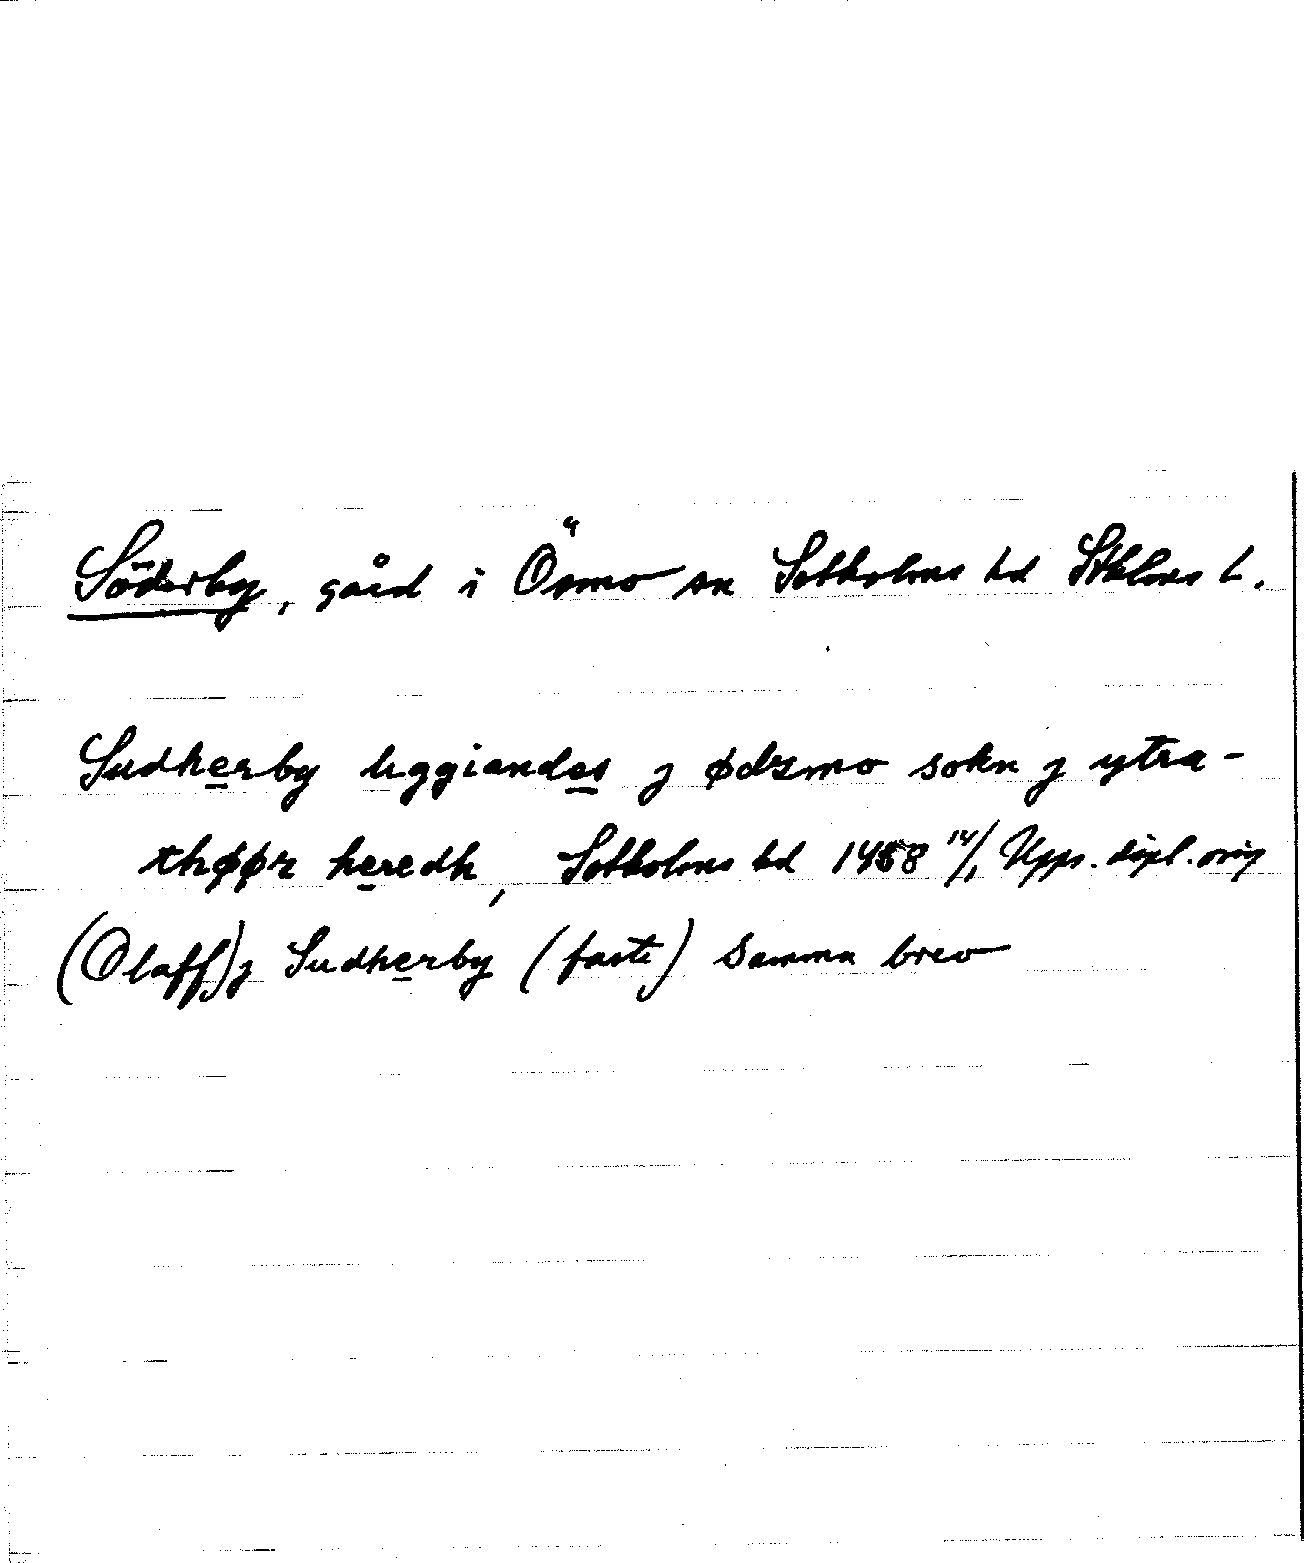 Söderby, gård i Ösmo sn Sotholms hd Sthlms l.
Sudherby liggiandes j ødzmo sokn j ytra-
thøør heredh, Sotholms hd 1458 14/1 Upps. dipl. orig
(Olaff) j Sudherby (faste) Samma brev